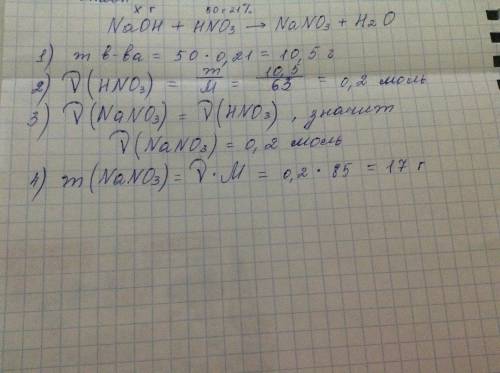 х г 50г 21%
NaOH + HNO₃ → NaNO₃ + H₂O
1) m в-ва = 50 · 0,21 = 10,5 г
2) ν(HNO₃) = m/M = 10,5/63 = 0,2 моль
3) ν(NaNO₃) = ν(HNO₃), значит
ν(NaNO₃) = 0,2 моль
4) m(NaNO₃) = ν · M = 0,2 · 85 = 17 г